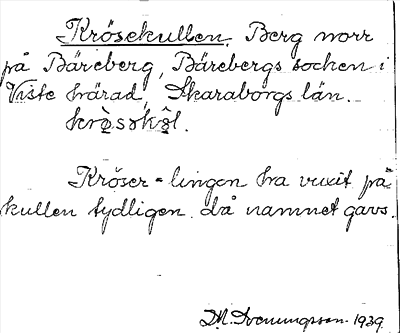 Krösekullen. Berg norr
på Bäreberg, Bärebergs socken i
Viste härad, Skaraborgs län.
Kröser = lingon ha vuxit på
kullen tydligen då namnet gavs.
M. Svenungsson 1939